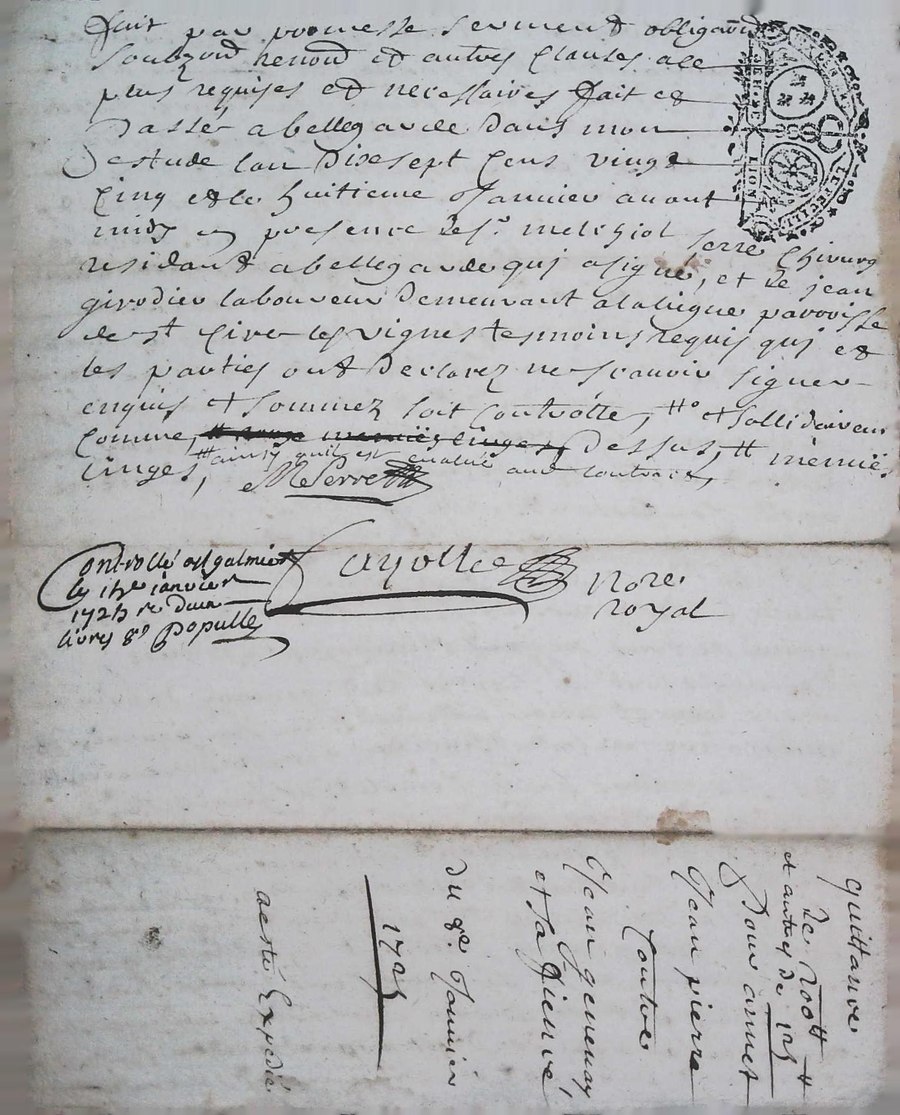 fait par promesse serment obligaon
renond et autres clauses ale
plus requises et necessaires fait et
passé a bellegarde dans mon
estude lan dixsept cens vingt
cinq et le huitieme Janvier avant
midy en presence de sr. melchiol serre chirurg
residant a bellegarde quj a signé, et de jean
girodier laboureur demeurant a parroisse
de st cire les vignes tesmoins requis quj et
les parties ont declarez ne scavoir signer
enquis et sommez soit controllé, tt° et sollidairemt
comme dessus, tt mermiés
linges, tt ainsy quil est evalué aud contract,
MSerre
Controllé a st galmier
le janvier
1725 r deux
livres 8s Populle
Fayolle
Nore
royal
LION
quittance
de 200tt
et autres de 125tt
Jean pierre
contre
Jean
et sa
du 8e. Janvier
1725
a esté Expedié